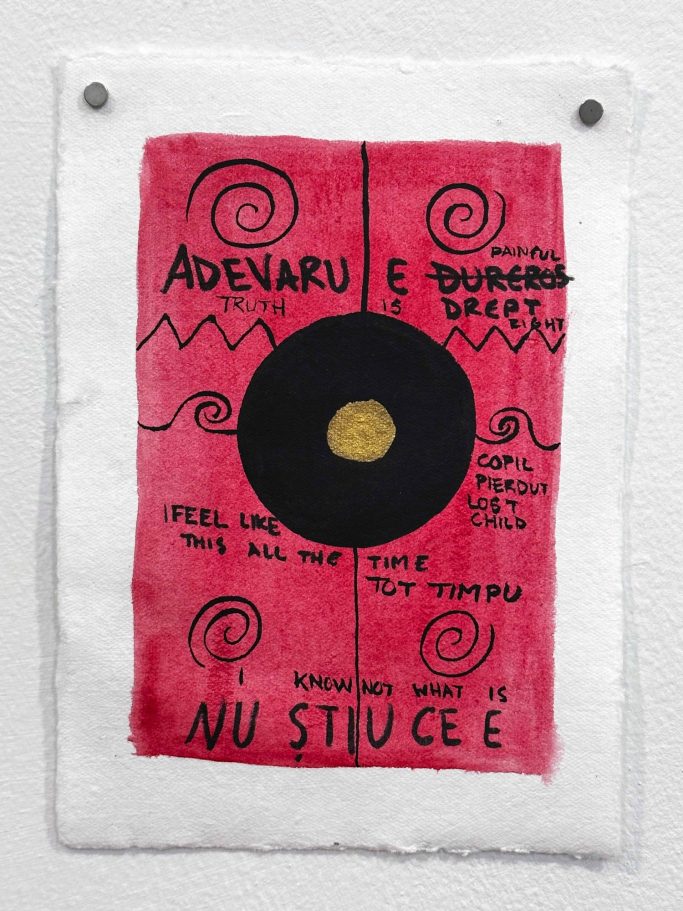 PAINFUL
ADEVARU E DUREROS
TRUTH IS DREPT
RIGHT
COPIL
PIERDUT
LOST
CHILD
I FEEL LIKE
THIS ALL THE TIME
TOT TIMPU
I KNOW NOT WHAT IS
NU ȘTIU CE E